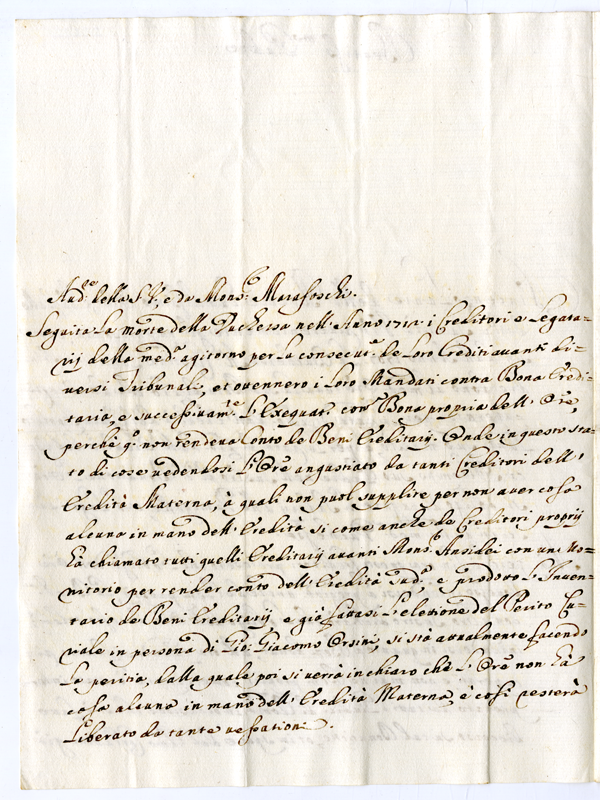 Aud.re della S. V. e da Mons.r Marafoschi.
Seguita La morte della Duchessa nell'Anno 1712 i Creditori e Legata=
rij della med.a agitorno per La consecut.e de Loro Crediti avanti di=
versi Tribunali, et ottennero i Loro Mandati contra Bona Eredi=
taria, e successivam.te L'Exeguati con.a Bona propria dell' Ore,
perche q.o non rendeva Conto de Beni Ereditarij. Onde in questo sta=
to di cose vedendosi L'Ore angustiato da tanti Creditori dell'
Eredità Materna, à quali non puol supplire per non aver cosa
alcuna in mano dell'Eredità si come anche de Creditori proprij
hà chiamato tutti quelli Ereditarij avanti Mons.r Ansidei con un Mo=
nitorio per render conto dell'Eredità sud.a e prodotto L'Inven=
tario de Beni Ereditarij e già fattasi L'elezione del Perito
viale in persona di Gio: Giacomo Orsini, si stà attualmente facendo
La perizia, dalla quale poi si verrà in chiaro che L'Ore non hà
cosa alcuna in mano dell'Eredità Materna, e così resterà
Liberato da tante vessationi.